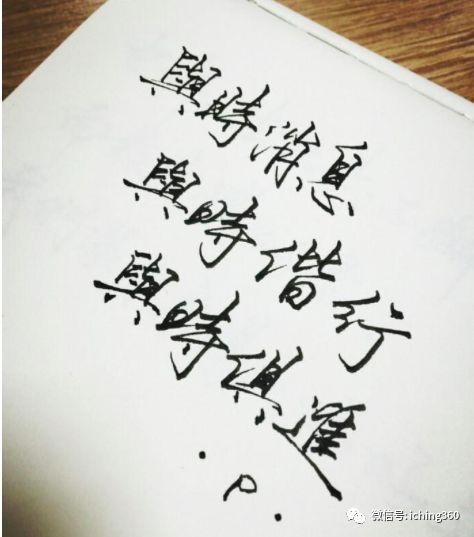 與時消息
與時偕行
與時俱進
微信号: iching360